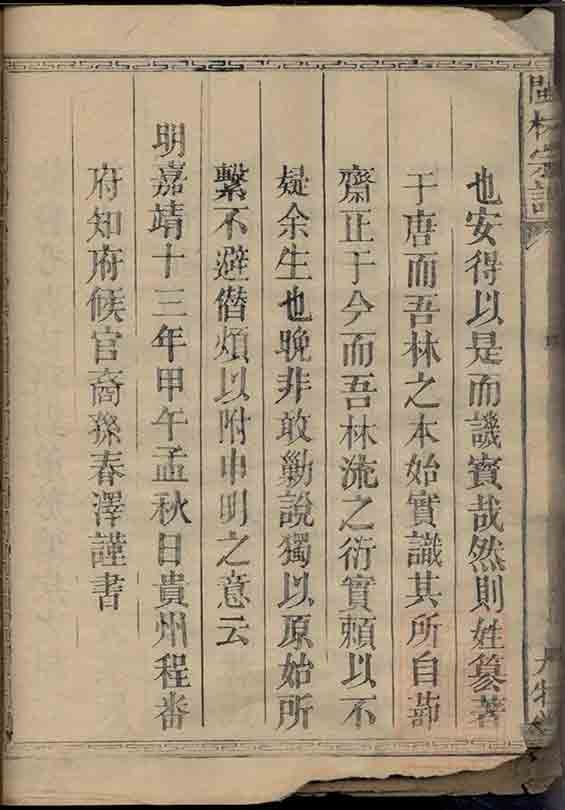 閩林宗譜
也安得以是而譏寶哉然則姓纂著
于唐而吾林之本始實識其所自蔀
齋正于今而吾林流之衍實賴以不
疑余生也晚非敢勦說獨以原始所
繫不避僭煩以附申明之意云
明嘉靖十三年甲午孟秋日貴州程番
府知府候官裔孫春澤謹書